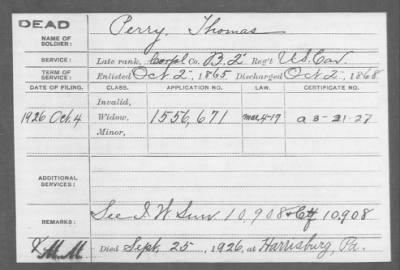 DEAD
NAME OF SOLDIER: Perry, Thomas
SERVICE: Late rank, Corpl Co. B. 2" Reg't U.S. Cav.
TERM OF SERVICE: Enlisted Oct 2", 1865 Discharged Oct 2", 1868
DATE OF FILING. CLASS. APPLICATION NO. LAW. CERTIFICATE NO.
Invalid,
1926 Oct. 4 Widow, 1556,671 a 3-21-27
Minor,
ADDITIONAL SERVICES:
REMARKS: See I. W Surv. 10,908 & Ctf 10,908
M.M. Died Sept. 25, 1926, at Harrisburg, Pa.